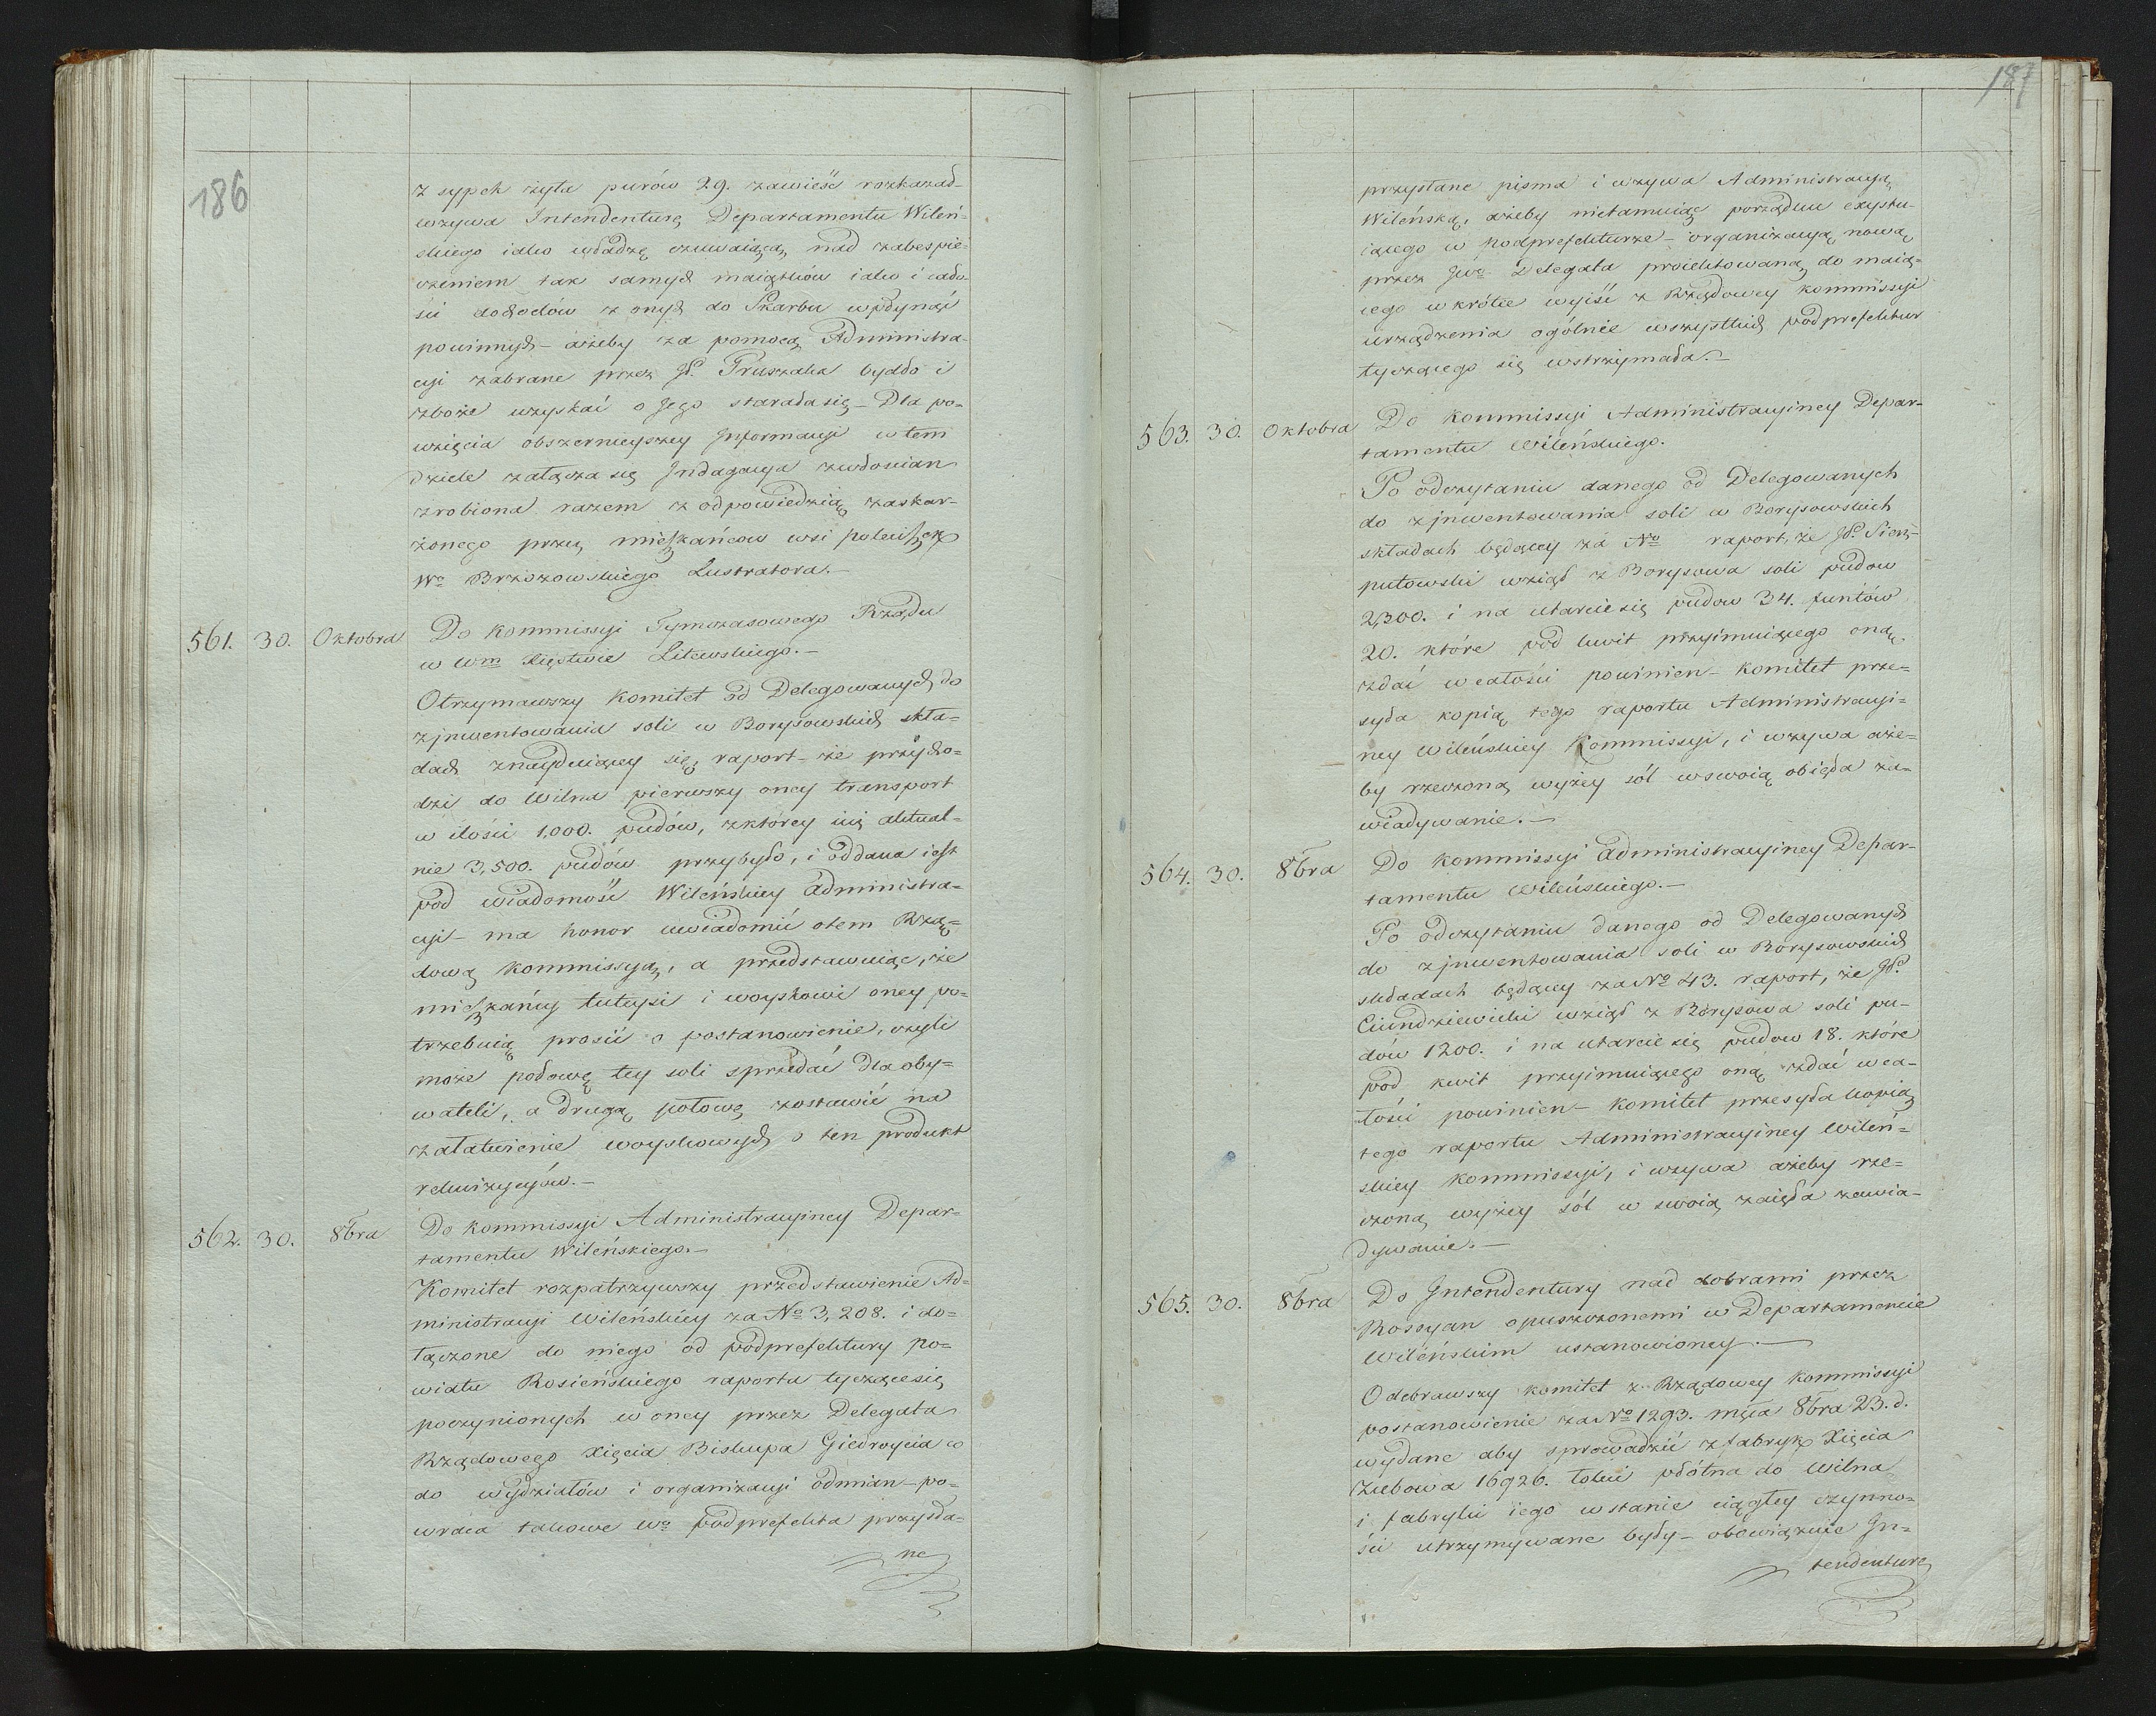 186
z sypek żyta purów 29. zawieść rozkazał-
wzywa Intendenturę Departamentu Wileń-
skiego iako władzę czuwaiącą nad zabespie-
czeniem tak samych maiątków iako i cało-
ści dochodów z onych do Skarbu wpłynąć
powinnych – ażeby za pomocą Administra-
cyi zabrane przez JP. Pruszaka bydło i
zboże uzyskać o Jego starała się – Dla po-
wzięcia obszernieyszey Informacyi w tem
dziele załącza się Indagacya z włościan
zrobiona razem z odpowiedzią zaskar-
żonego przez mieszkańcow wsi
Wo Brzozowskiego Lustratora. –
561. 30. Oktobra Do Kommissyi Tymczasowego Rządu
w Wm Xięstwie Litewskiego. –
Otrzymawszy Komitet od Delegowanych do
zjnwentowania soli w Borysowskich skła-
dach znayduiącey się, raport – że przycho-
dzi do Wilna pierwszy oney transport
w ilości 1,000. pudów, z ktorey iuż aktual-
nie 3,500. pudów przybyło, i oddana iest
pod wiadomość Wileńskiey Administra-
cyi – ma honor uwiadomić o tem Rzą-
dową Kommissyą, a przedstawuiąc, że
mieszkańcy tuteysi i woyskowi oney po-
trzebuią prosić o postanowienie, czyli
może połowę tey soli sprzedać dla oby-
wateli, a drugą połowę zostawić na
załatwienie woyskowych o ten produkt
rekwizycyów. –
562. 30. 8bra Do Kommissyi Administracyiney Depar-
tamentu Wileńskiego. –
Komitet rozpatrzywszy przedstawienie Ad-
ministracyi Wileńskiey za No 3,208. i do-
łączone do niego od podprefektury po-
wiatu Rosieńskiego raporta tyczące się
poczynionych w oney przez Delegata
Rządowego Xięcia Biskupa Giedroycia co
do wydziałów i organizacyi odmian – po-
wraca takowe Wo podprefekta przysła-
ne
187
przysłane pisma i wzywa Administracyą
Wileńską, ażeby nietamuiąc porządku exystu-
iącego w podprefekturze – organizacyą nową
przez JWo Delegata proiektowaną do maią-
cego wkrótce wyiść z Rządowey Kommissyi
urządzenia ogólnie wszystkich podprefektur
tyczącego się wstrzymała. –
563. 30. Oktobra Do Kommissyi Administracyiney Depar-
tamentu Wileńskiego.
Po odczytaniu danego od Delegowanych
do zjnwentowania soli w Borysowskich
składach będącey za No raport, że JP.
putowski wziął z Borysowa soli pudow
2,300. i na utarcie się pudow 34. funtów
20. które pod kwit przyimuiącego oną
zdać w całości powinien – Komitet prze-
syła kopią tego raportu Administracyi-
ney Wileńskiey Kommissyi, i wzywa aże-
by rzeczoną wyżey sól w swoią obięła za-
wiadywanie. –
564. 30. 8bra Do Kommissyi Administracyiney Depar-
tamentu Wileńskiego. –
Po odczytaniu danego od Delegowanych
do zjnwentowania soli w Borysowskich
składach będącey za No 43. raport, że JP.
Ciundziewicki wziął z Borysowa soli pu-
dów 1200. i na utarcie się pudow 18. które
pod kwit przyimuiącego oną zdać w ca-
łości powinien – Komitet przesyła kopią
tego raportu Administracyiney Wileń-
skiey Kommissyi, i wzywa ażeby rze-
czoną wyżey sól w swoią zaięła zawia-
dywanie. –
565. 30. 8bra Do Intendentury nad dobrami przez
Rossyan opuszczonemi w Departamencie
Wileńskim ustanowioney. –
Odebrawszy Komitet z Rządowey Kommissyi
postanowienie za No 1293. mca 8bra 23. d.
wydane aby sprowadzić z fabryk Xięcia
Zubowa 16926. łokci płótna do Wilna
i fabryki iego w stanie ciągłey czynno-
ści utrzymywane były – obowiązuie In-
tendenturę